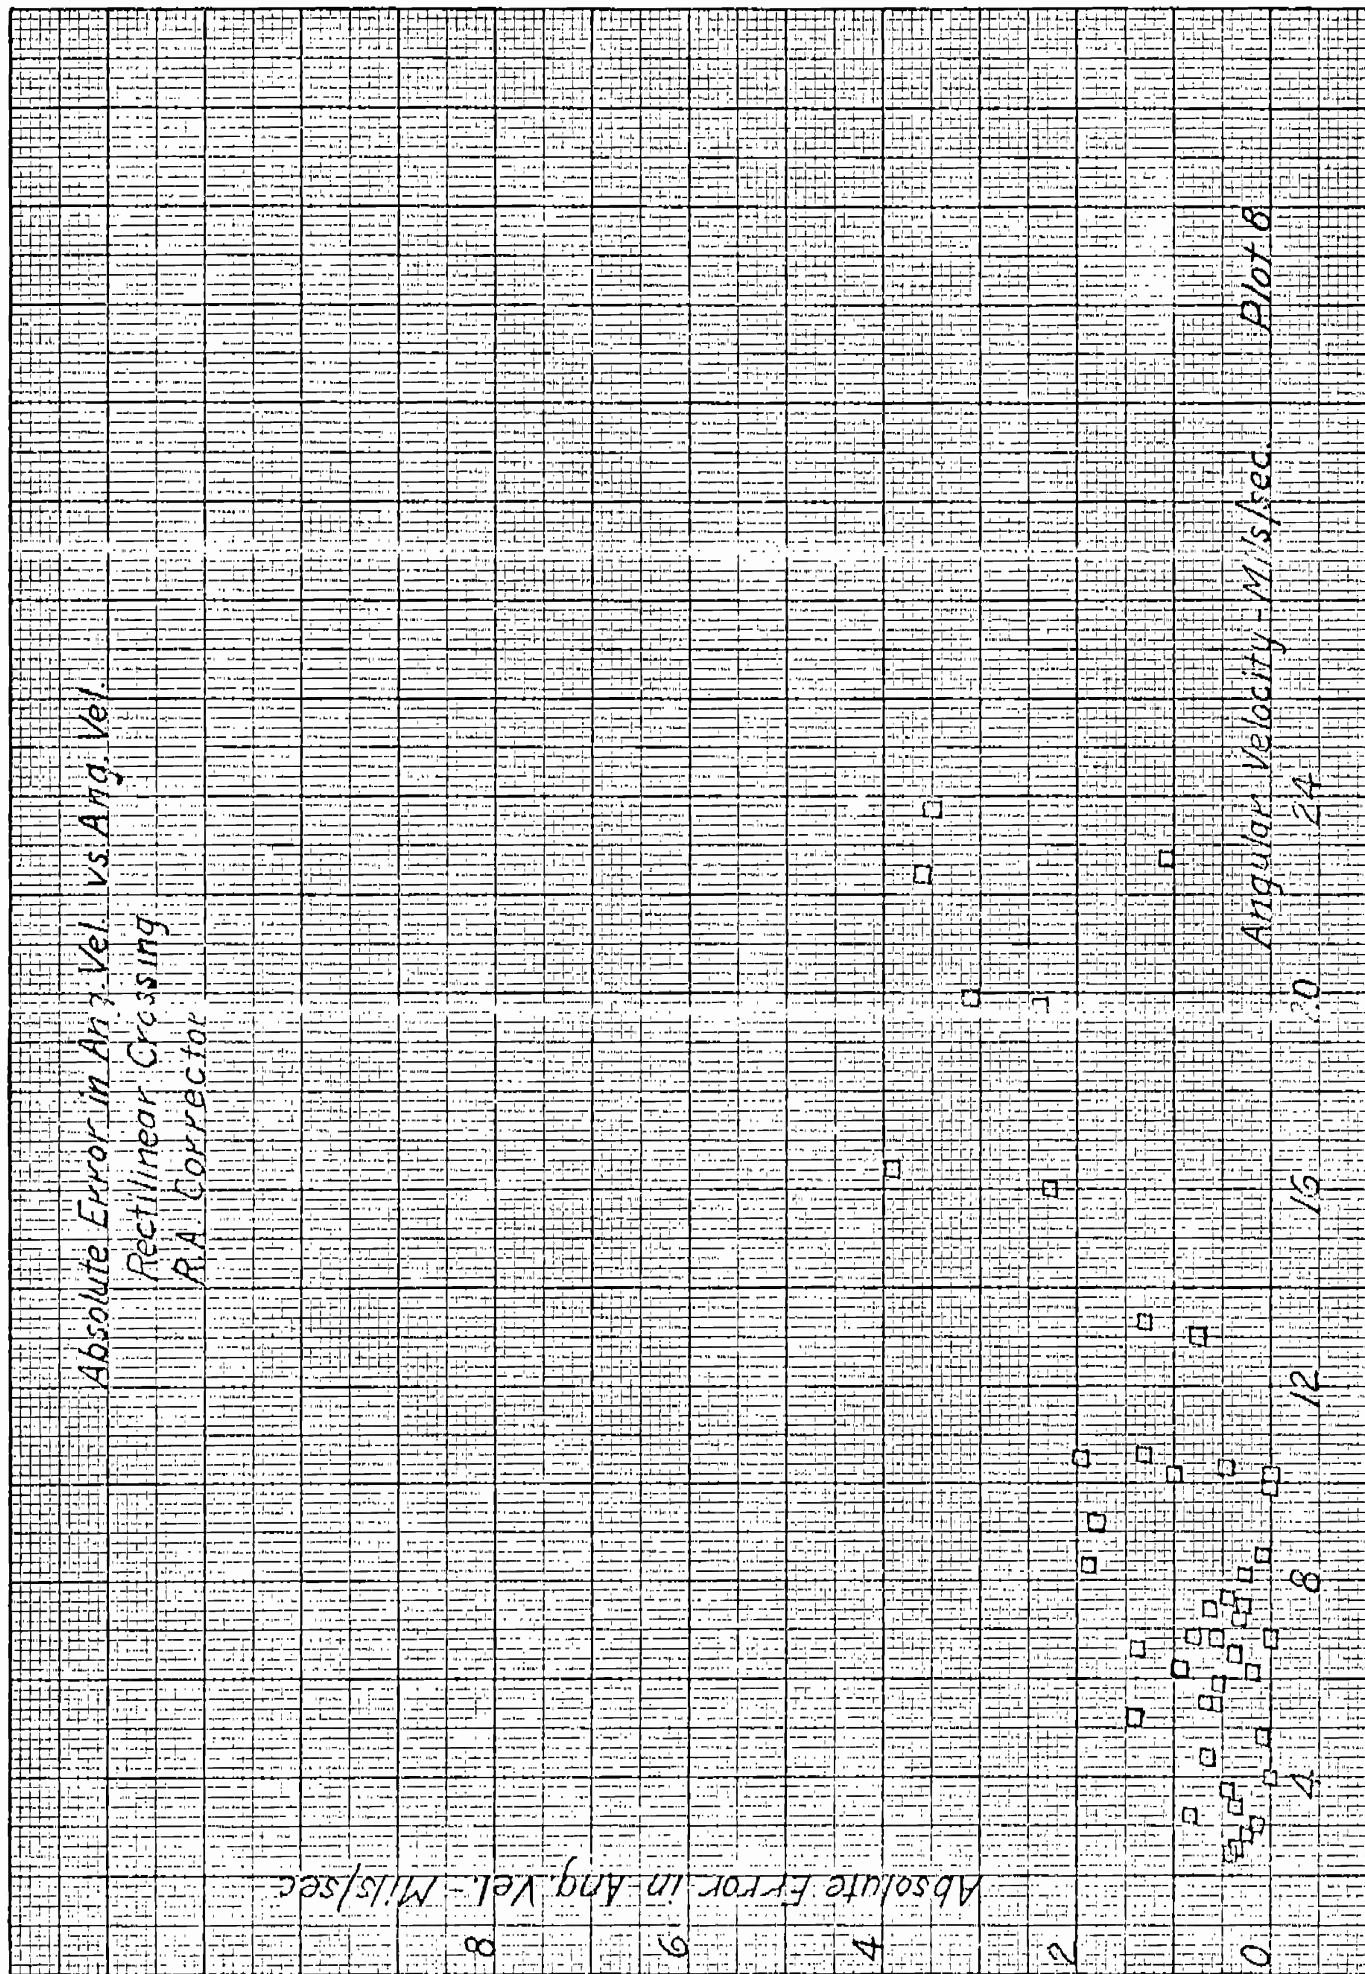 Absolute Error in Ang. Vel. vs. Ang. Vel.
Rectilinear Crossing
R.A. Corrector
Absolute Error in Ang. Vel. - Mils/sec
8
6
4
2
0
4
8
12
16
20
24
Angular Velocity - Mils/sec. Plot 8